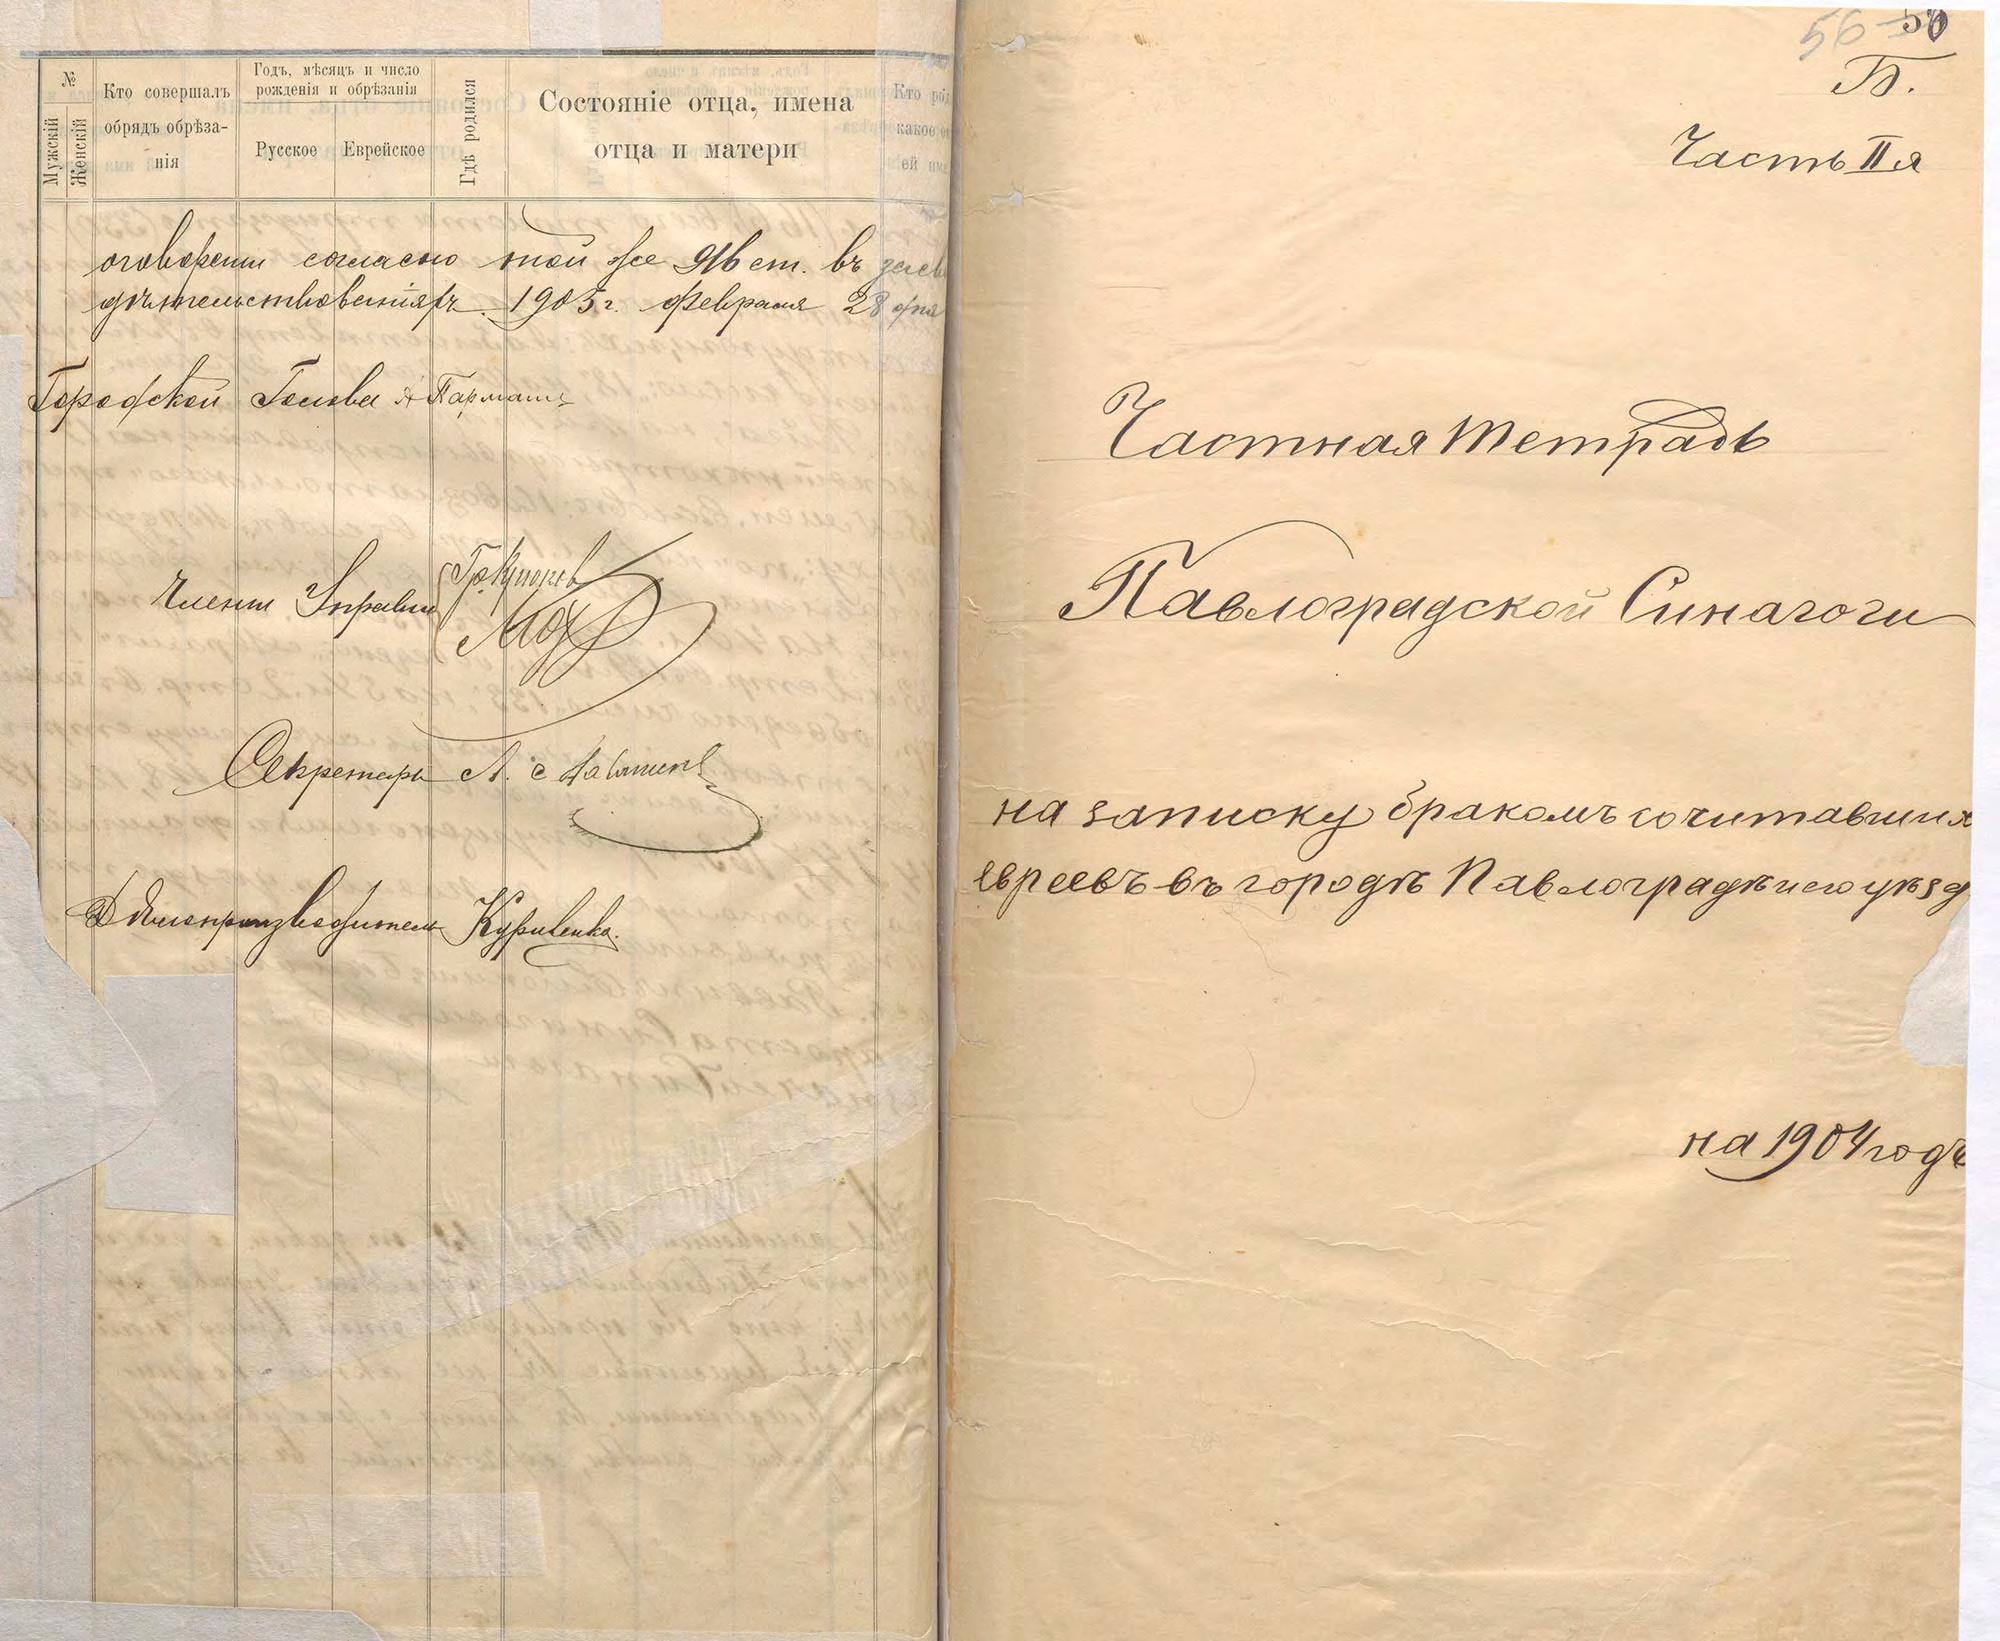 №
Мужскій
Женскій
Кто совершалъ
обрядъ обрѣза-
нія
Годъ, мѣсяцъ и число
рожденія и обрѣзанія
Русское
Еврейское
Гдѣ родился
Состояніе отца, имена
отца и матери
Кто
какое
ей
оговорены согласно той же ст. въ засви
дѣтельствованіяхъ. 1905 г. февраля 28 дня
Городской Голова
Члены Управы
Секретарь
Дѣлопроизводитель
56
Б.
Часть II я
Частная тетрадь
Павлоградской Синагоги
на записку бракомъ сочитавшихся
евреевъ въ городѣ Павлоградѣ и его уѣзд
на 1904 годъ